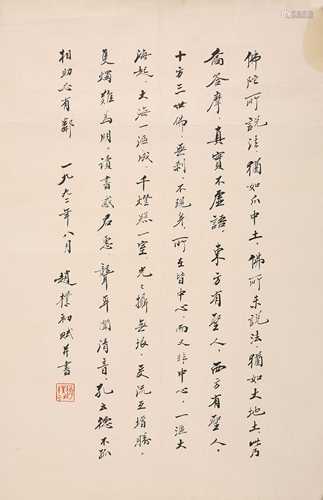 佛陀所説法，猶如爪中土，佛所未説法，猶如大地土，此乃
喬荅摩，真實不虛語。東方有聖人，西方有聖人，
十方三世佛，無刹不現身，所在皆中心，而人非中心。一漚大
海起，大海一漚成，千燈照一室，光光攝無垠，交流互增勝，
燭難為明，讀書感君惠，聾耳聞清音，孔云德不孤
相助必有鄰 一九九二年八月 趙樸初賦并書